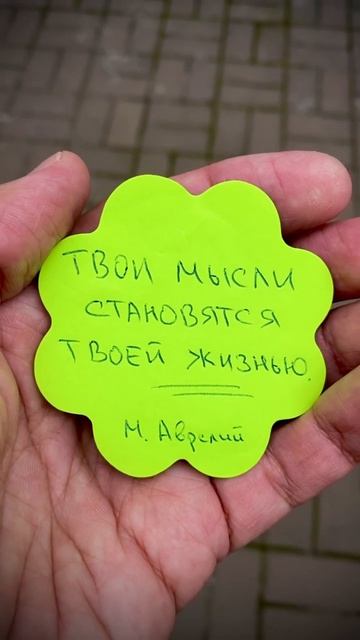 ТВОИ МЫСЛИ
СТАНОВЯТСЯ
ТВОЕЙ ЖИЗНЬЮ.
М. Аврелий